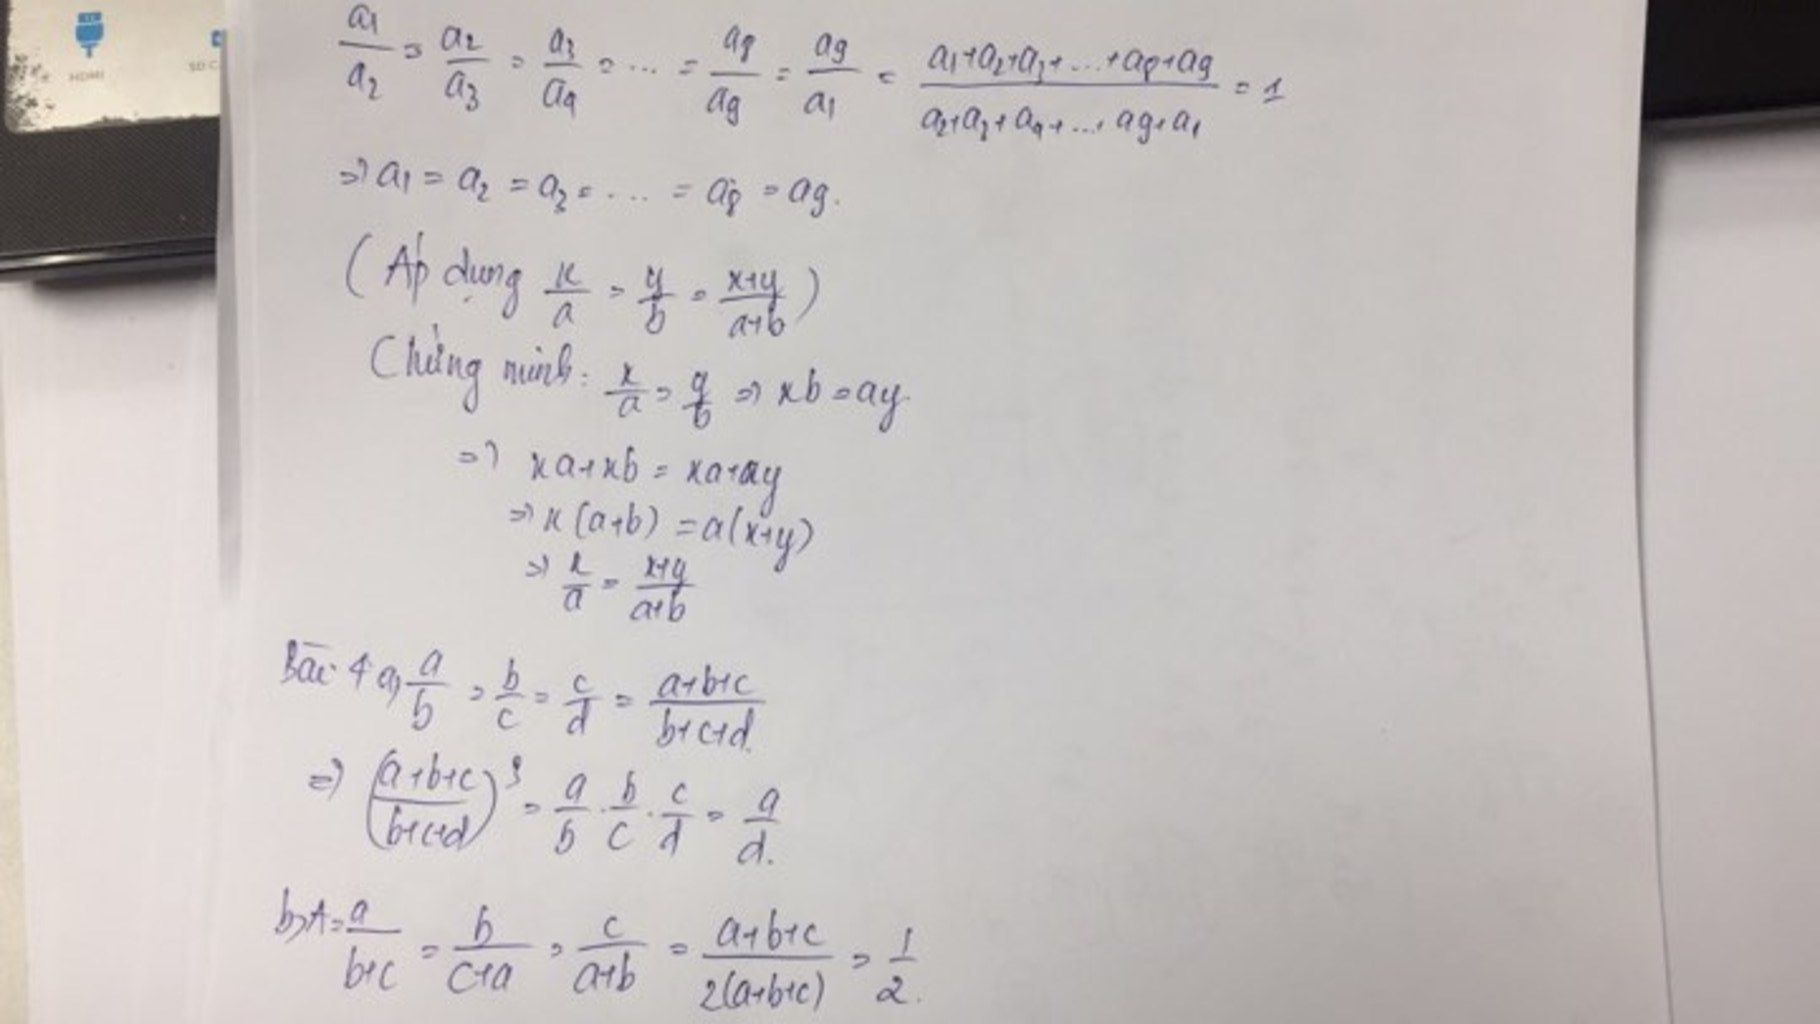 HDMI
SD C
a1/a2 = a2/a3 = a3/a4 = ... = a8/a9 = a9/a1 = (a1+a2+a3+...+a8+a9)/(a2+a3+a4+...+a9+a1) = 1
=> a1 = a2 = a3 = ... = a8 = a9.
(Áp dụng x/a = y/b = (x+y)/(a+b))
Chứng minh: x/a = y/b => xb = ay.
=> xa+xb = xa+ay
=> x(a+b) = a(x+y)
=> x/a = (x+y)/(a+b)
Bài 4 a) a/b = b/c = c/d = (a+b+c)/(b+c+d)
=> ((a+b+c)/(b+c+d))^3 = a/b . b/c . c/d = a/d.
b) A = a/(b+c) = b/(c+a) = c/(a+b) = (a+b+c)/(2(a+b+c)) = 1/2.